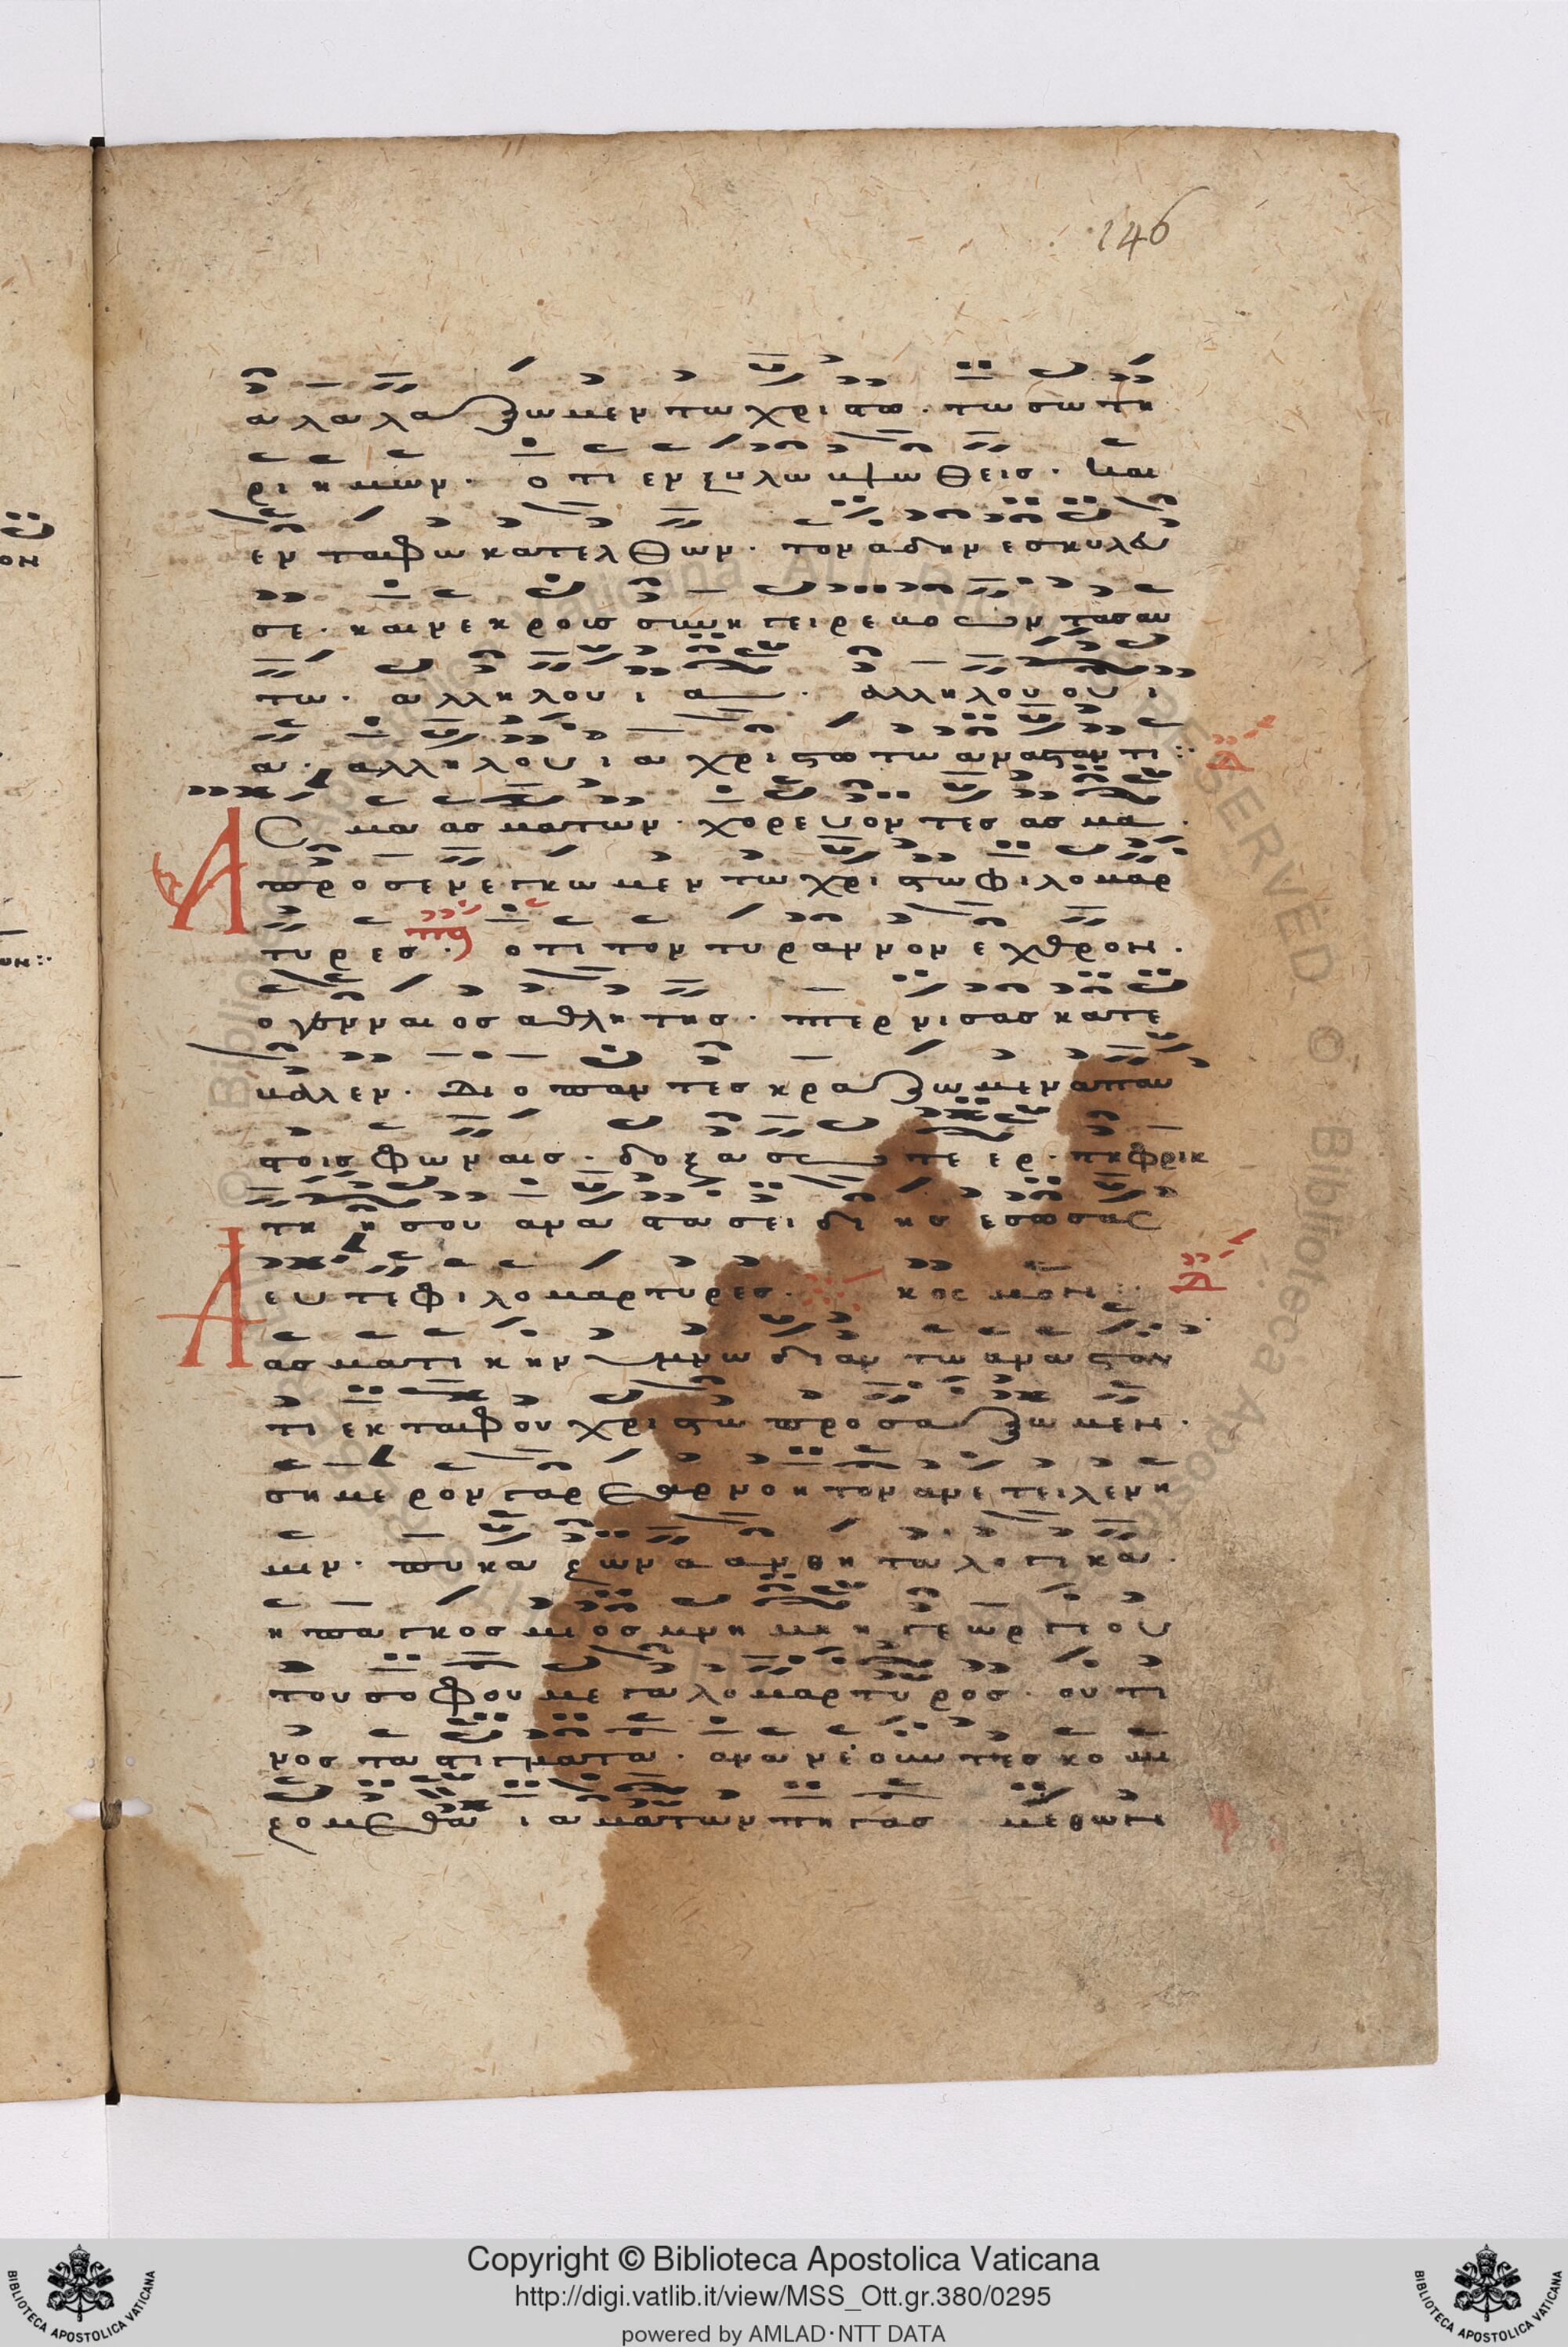 146
αλαλαζωμεν τω χριστω · τω σωτη
ρι ημων · οτι εν ξυλω υψωθεις · και
εν ταφω κατελθων · τον αδην εσκυλευ
σε · και νεκρους συνηγειρεν
τω · αλληλουια · αλληλουουι
α · αλληλουια χριστω τω αναστάντι :·
Ασμα ασματων · χορευοντες ασμα ·
προσενεγκωμεν τω χριστω φιλομαρ
τυρες · οτι τον τυραννον εχθρον ·
ο γενναιος αθλητης · πτερνισας κατε
βαλεν · Διο παντες κραζωμεν απαυ
στοις φωναις · δοξα σοι πατερ · τη φρικ
τη η σου αναστασει δι ης εσωσας
Αευτε φιλομαρτυρες · κοσμον :·
Ασματικην υμνωδιαν τω αναστάν
τι εκ ταφου χριστω προσαξωμεν ·
σημερον γαρ εαρινον τον ανετειλεν η
μιν · και ζωνα ανθη τα λογικα ·
η παγκοσμιος μνημη γεωργιου
του σοφου μεγαλομαρτυρος · ου τι
νος τα στιγματα · ανα νεουντες κομι
ζομεθα ιαματων πηγας μεθων
Copyright © Biblioteca Apostolica Vaticana
http://digi.vatlib.it/view/MSS_Ott.gr.380/0295
powered by AMLAD·NTT DATA
BIBLIOTECA APOSTOLICA VATICANA
BIBLIOTECA APOSTOLICA VATICANA